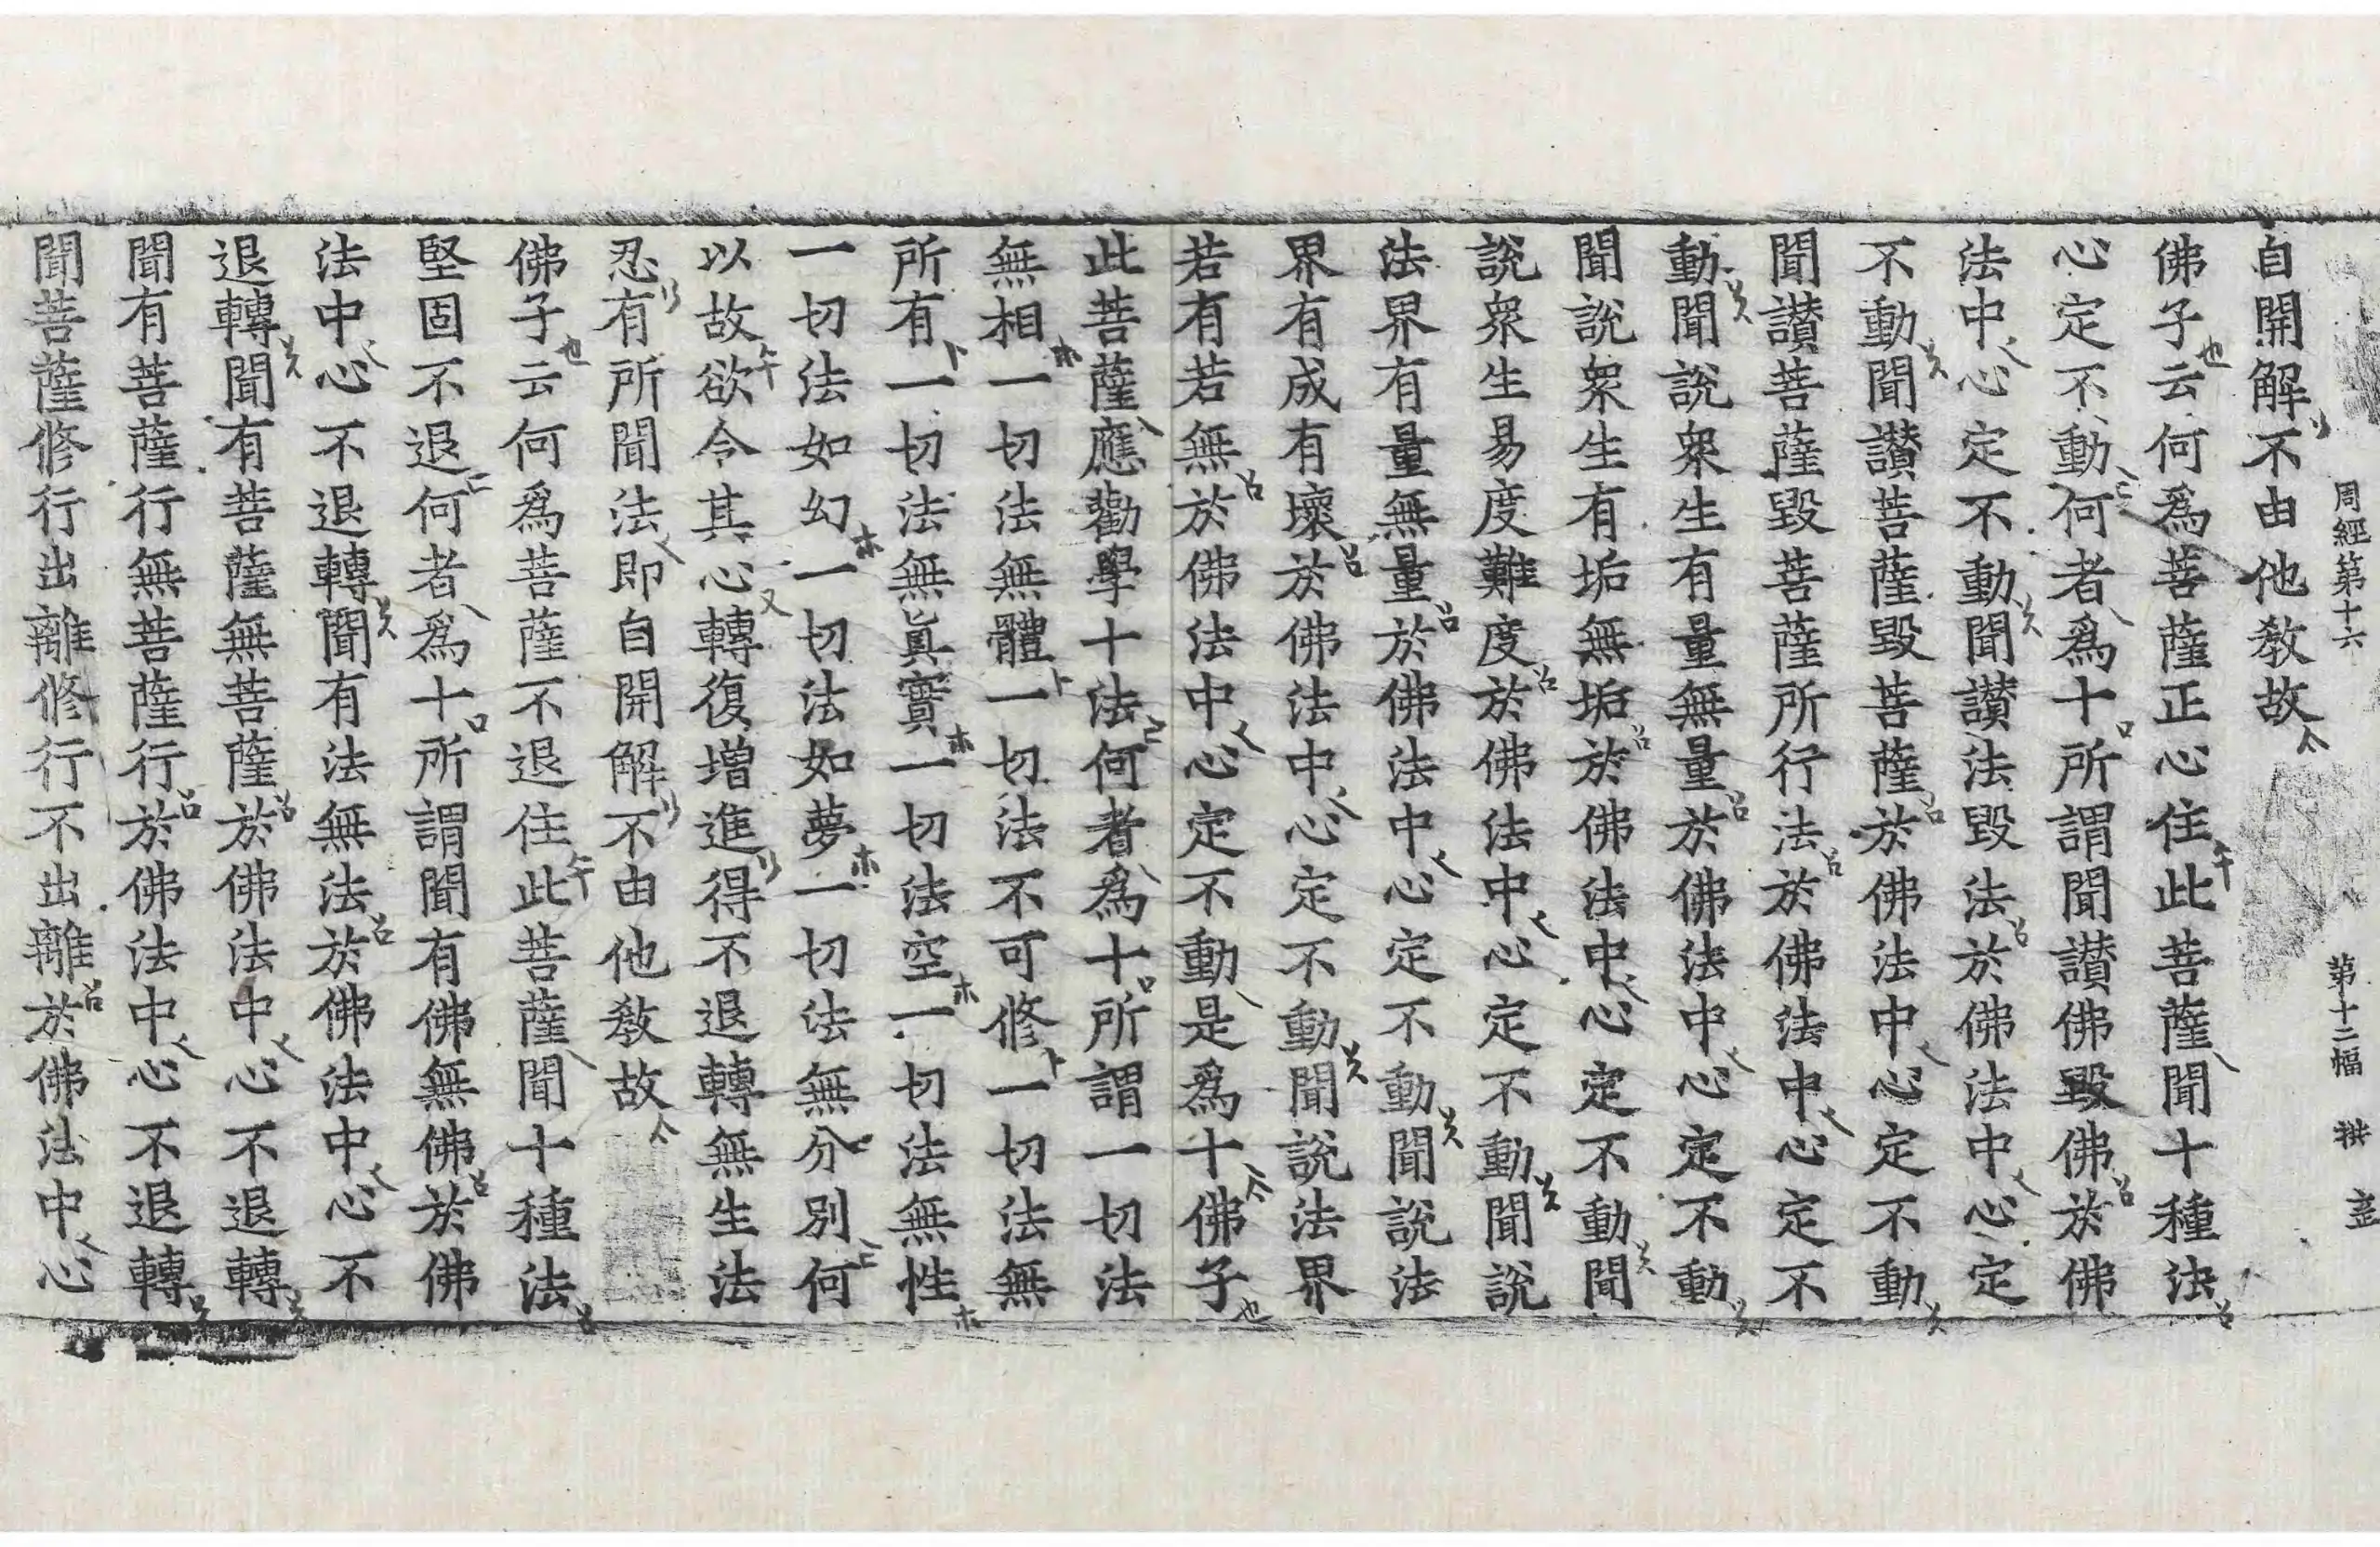 周經第十六 第十二幅 拱 𡔷
自開解不由他教故
佛子云何爲菩薩正心住此菩薩聞十種法
心定不動何者爲十所謂聞讃佛毀佛於佛
法中心定不動聞讃法毀法於佛法中心定
不動聞讃菩薩毀菩薩於佛法中心定不動
聞讃菩薩毀菩薩所行法於佛法中心定不
動聞說衆生有量無量於佛法中心定不動
聞說衆生有垢無垢於佛法中心定不動聞
說衆生易度難度於佛法中心定不動聞說
法界有量無量於佛法中心定不動聞說法
界有成有壞於佛法中心定不動聞說法界
若有若無於佛法中心定不動是爲十佛子
此菩薩應勸學十法何者爲十所謂一切法
無相一切法無體一切法不可修一切法無
所有一切法無眞實一切法空一切法無性
一切法如幻一切法如夢一切法無分別何
以故欲令其心轉復增進得不退轉無生法
忍有所聞法即自開解不由他教故
佛子云何爲菩薩不退住此菩薩聞十種法
堅固不退何者爲十所謂聞有佛無佛於佛
法中心不退轉聞有法無法於佛法中心不
退轉聞有菩薩無菩薩於佛法中心不退轉
聞有菩薩行無菩薩行於佛法中心不退轉
聞菩薩修行出離修行不出離於佛法中心